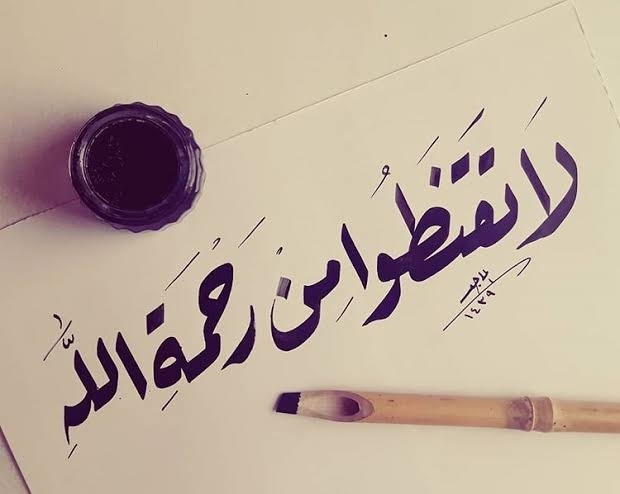 لَا تَقنَطُوا مِنْ رَحْمَةِ اللَّهِ
١٤٣٩